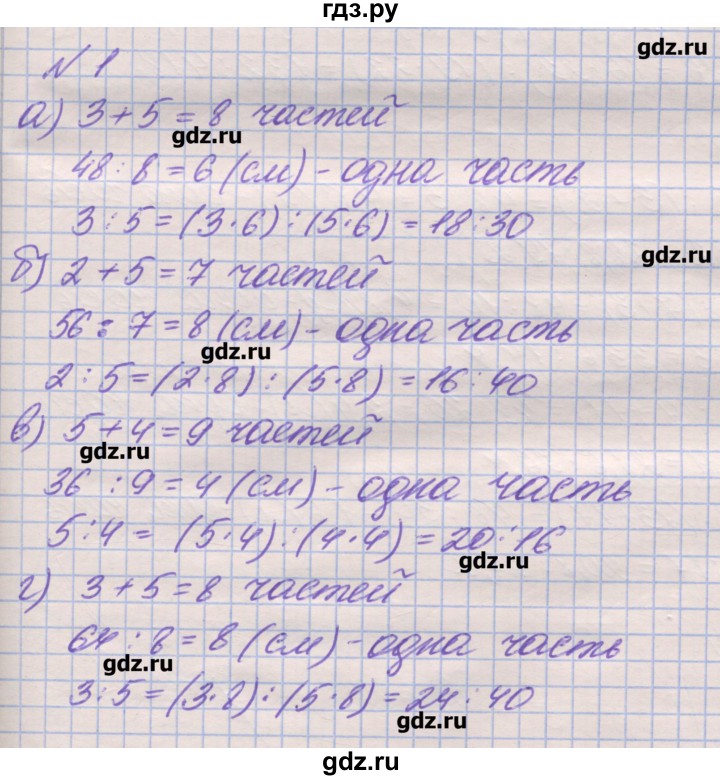 гдз.ру
gdz.ru
N 1
а) 3 + 5 = 8 частей
gdz.ru
48 : 8 = 6 (см) - одна часть
3 : 5 = (3 · 6) : (5 · 6) = 18 : 30
gdz.ru
б) 2 + 5 = 7 частей
56 : 7 = 8 (см) - одна часть
gdz.ru
2 : 5 = (2 · 8) : (5 · 8) = 16 : 40
в) 5 + 4 = 9 частей
gdz.ru
36 : 9 = 4 (см) - одна часть
5 : 4 = (5 · 4) : (4 · 4) = 20 : 16
gdz.ru
г) 3 + 5 = 8 частей
64 : 8 = 8 (см) - одна часть
gdz.ru
3 : 5 = (3 · 8) : (5 · 8) = 24 : 40
gdz.ru
gdz.ru